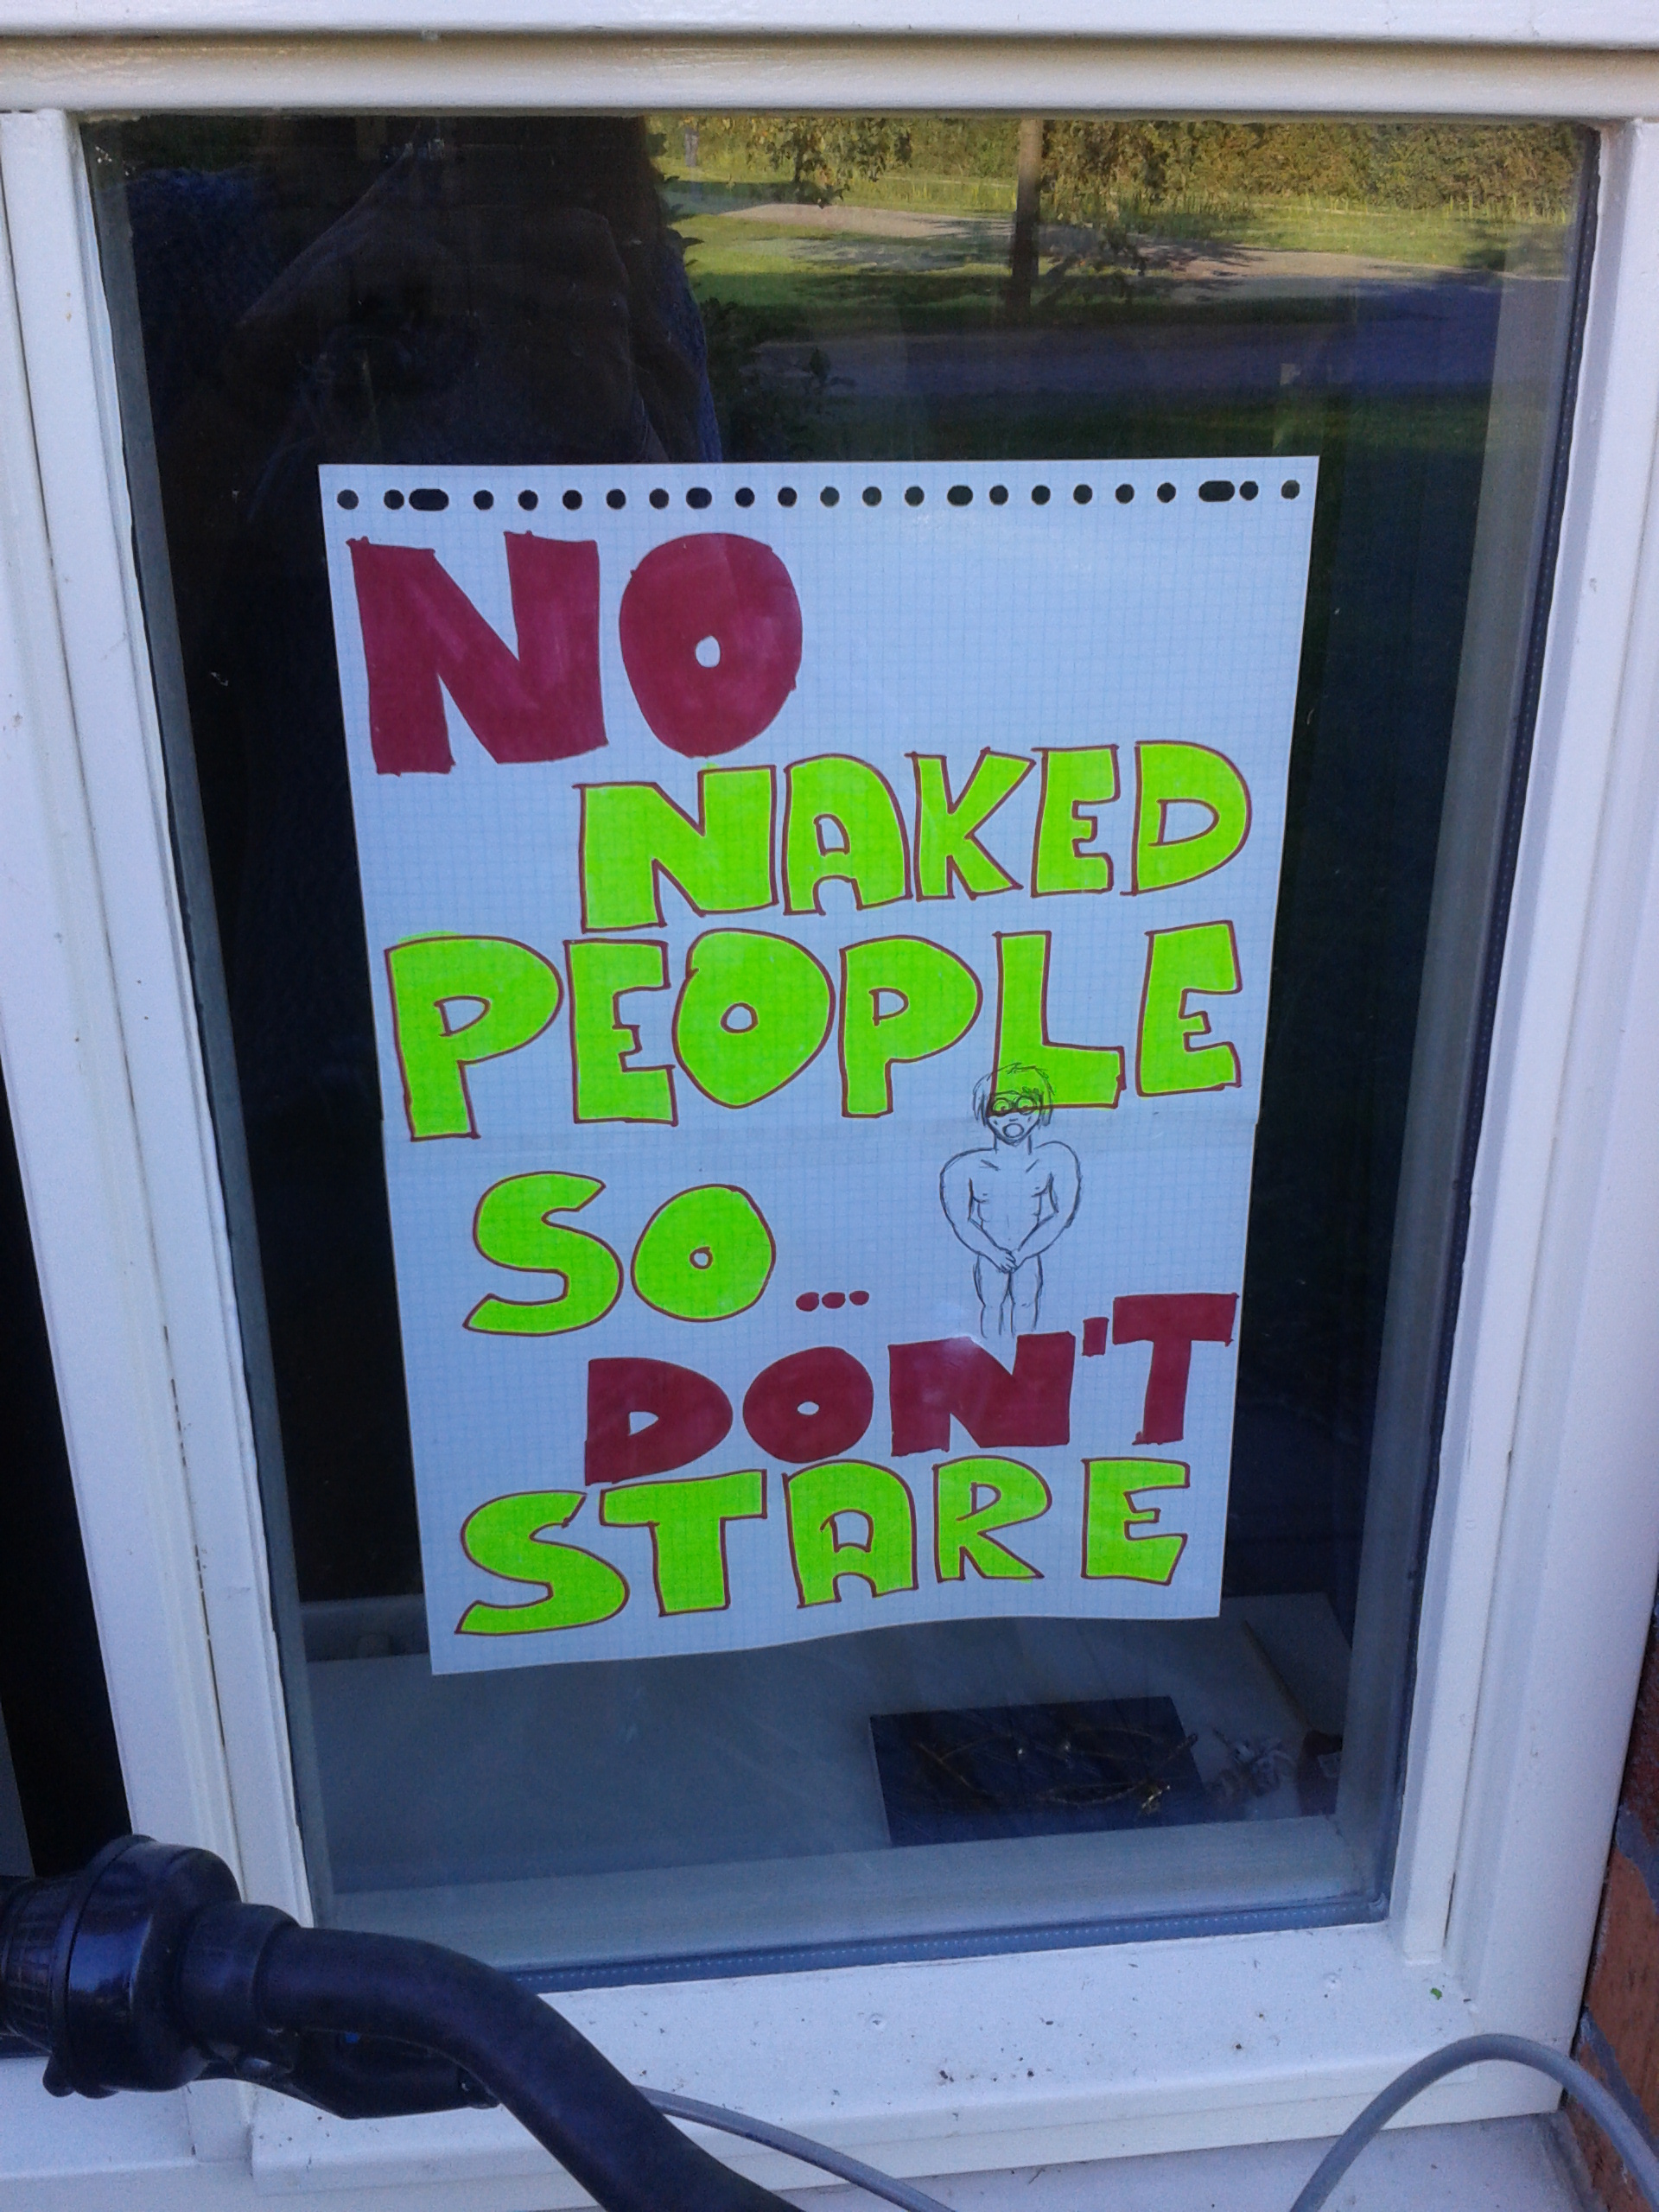 NO
NAKED
PEOPLE
SO...
DON'T
STARE